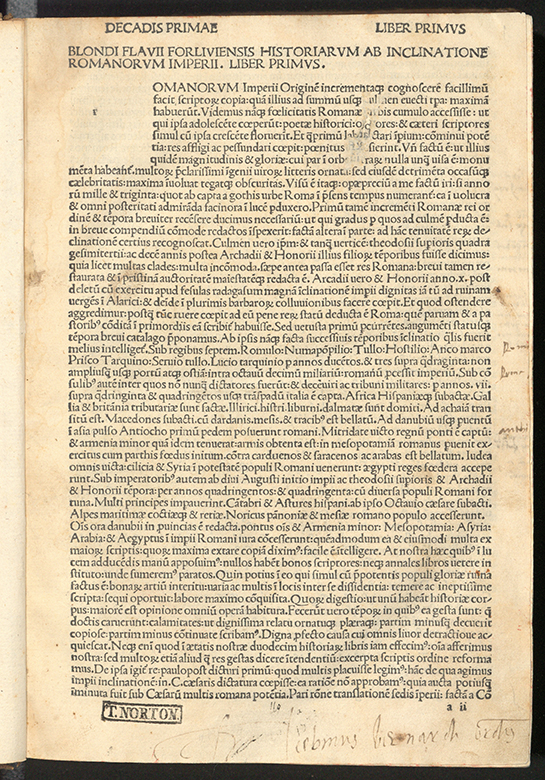 DECADIS PRIMAE LIBER PRIMVS
BLONDI FLAVII FORLIVIENSIS HISTORIARVM AB INCLINATIONE
ROMANORVM IMPERII. LIBER PRIMVS.
OMANORVM Imperii Originē incrementaqꝫ cognoscere facillimū
facit scriptoꝝ copia: qua illius ad summū usqꝫ euecti tpa: maximā
habuerūt. Videmus nāqꝫ fœlicitatis Romanæ bis cumulo accessisse: ut
qui ipsa adolescēte cœperūt: poetæ historici: & cæteri scriptores
simul cū ipsa crescēte floruerīt. Et ꝗprimū ctari ipium: cōminui potē
tia: res affligi ac pessundari cœpit: pœnitus sierint. Vn̄ factū ē: ut illius
quidē magnitudinis & gloriæ: cui par ī orb nulla unꝗ̄ uisa ē: monu
mēta habeam⁹. multoꝝ p̄clarissimi īgenii uiroꝝ litteris ornata: sed eiusdē detrimēta occasūqꝫ
cælebritatis: maxima īuoluat tegatqꝫ obscuritas. Visū ē itaqꝫ: opæpreciū a me factū iri: si anno
rū mille & triginta: quot ab capta a gothis urbe Roma ī p̄sens tempus numerant: ea īuolucra
& omni posteritati admirāda facinora ī lucē pduxero. Primū tamē incremēti Romanæ rei or
dinē & tēpora breuiter recēsere ducimus necessariū: ut qui gradus p quos ad culmē pducta ē:
in breue compendiū cōmode redactos īspexerit: factā alterā parte: ad hāc tenuitate reꝝ de⸗
clinationē certius recognoscat. Culmen uero ipm̄: & tanꝗ̄ uerticē: theodosii supioris quadra
gesimtertii: ac decē annis postea Archadii & Honorii illius filioꝝ: tēporibus fuisse dicimus:
quia licet multas clades: multa incōmoda. sæpe antea passa esset res Romana: breui tamen re⸗
staurata & ī pristinā auctoritatē maiestatēqꝫ redacta ē. Arcadii uero & Honorii anno.x. post
deletū cū exercitu apud fesulas radagasum magnā īclinationē impii dignitas iā tū ad ruinam
uergēs ī Alarici: & deide ī plurimis barbaroꝝ colluuionibus facere cœpit. Et quod ostendere
aggredimur: postꝗ̄ tūc ruere cœpit ad eū pene reꝝ statū deducta ē Roma: quē paruam & a pa
storib⁹ cōditā ī primordiis eā scribūt habuisse. Sed uetusta primū pcurrētes. augumēti statusqꝫ
tēpora breui catalago p̄ponamus. Ab ipsis nāqꝫ facta successiuis tēporibus īclinatio ꝗlis fuerit
melius intelliget. Sub regibus septem. Romulo: Numapōpilio: Tullo: Hostilio: Anco marco
Prisco Tarquino: Seruio tullo. Lucio tarquinio p annos ducētos. & tres supra ꝗdraginta: non
ampliusqꝫ usqꝫ portū atqꝫ ostiā: intra octauū decimū miliariū: romanū pcessit imperiū. Sub cō
sulib⁹ autē inter quos nō nunꝗ̄ dictatores fuerūt: & decēuiri ac tribuni militares: p annos. vii.
supra ꝗdringinta & quadringētos usqꝫ trāspadū italia ē capta. Africa Hispaniæqꝫ subactæ. Gal
lia & britānia tributariæ sunt factæ. Illirici. histri. liburni. dalmatæ sunt domiti. Ad achaiā tran
sitū est. Macedones subacti. cū dardanis. mesis. & tracib⁹ est bellatū. Ad danubiū usqꝫ puentū
ī asia pulso Antiocho primū pedem posuerunt romani. Mitridate uicto regnū ponti ē captū:
& armenia minor quā idem tenuerat: armis obtenta est: in mesopotamiā romanus puenit ex⸗
ercitus cum parthis fœdus initum. cōtra carduenos & saracenos ac arabas est bellatum. Iudea
omnis uicta: cilicia & Syria ī potestatē populi Romani uenerunt: ægypti reges fœdera accepe
runt. Sub imperatorib⁹ autem ab diui Augusti initio impii ac theodosii supioris & Archadii
& Honorii tēpora: per annos quadringentos: & quadraginta: cū diuersa populi Romani for
tuna. Multi principes impauerint. Cātabri & Astures hispani. ab ipso Octauio cæsare subacti.
Alpes maritimæ coctiæqꝫ & retiæ. Noricus pānoniæ & mesiæ romano populo accesserunt.
Ois ora danubii in puincias ē redacta. pontus oīs & Armenia minor: Mesopotamia: Asyria:
Arabia: & Aegyptus ī impii Romani iura cōcesserunt: quēadmodum ea & eiusmodi multa ex
maioꝝ scriptis: quoꝝ maxima extare copiā dixim⁹: facile ē ītelligere. At nostra hæc quib⁹ ī lu
tem adducēdis manū apposuim⁹: nullos habēt bonos scriptores: neqꝫ annales libros uetere in
stituto: unde sumerem⁹ paratos. Quin potius ī eo qui simul cū p̄potentis populi gloriæ ruina
factus ē: bonaꝝ artiū interitu: uaria ac multis ī locis inter se dissidentia: temere ac ineptissime
scripta: sequi oportuit: labore maximo cōquisita. Quoꝝ digestio: ut unū habeāt historiæ cor⸗
pus: maiorē est opinione omniū operā habitura. Fecerūt uero tēpoꝝ in quib⁹ ea gesta sunt: ꝗ
doctis caruerunt: calamitates: ut dignissima relatu ornatuqꝫ plæraqꝫ: partim minusqꝫ decuerit
copiose: partim minus cōtinuate scribam⁹. Digna p̄fecto causa cui omnis liuor detractioue ac⸗
quiescat. Neqꝫ eni quod ī ætatis nostræ duodecim historiaꝝ libris iam effecim⁹: oīa afferimus
nostra: sed multoꝝ etiā aliud ꝗ res gestas dicere ītendentiū: excerpta scriptis ordine reformā
mus. De ipsa igif re: paulopost dicturi primū: quod multis placuisse legim⁹: hāc de qua agimus
impii inclinationē: in. C. cæsaris dictatura cœpisse: ea ratiōe nō approbam⁹: quia aucta potiusqꝫ
iminuta fuit sub Cæsarū multis romana potētia. Pari rōne translationē sedis īperii: factā a Cō
a ii
T. NORTON.